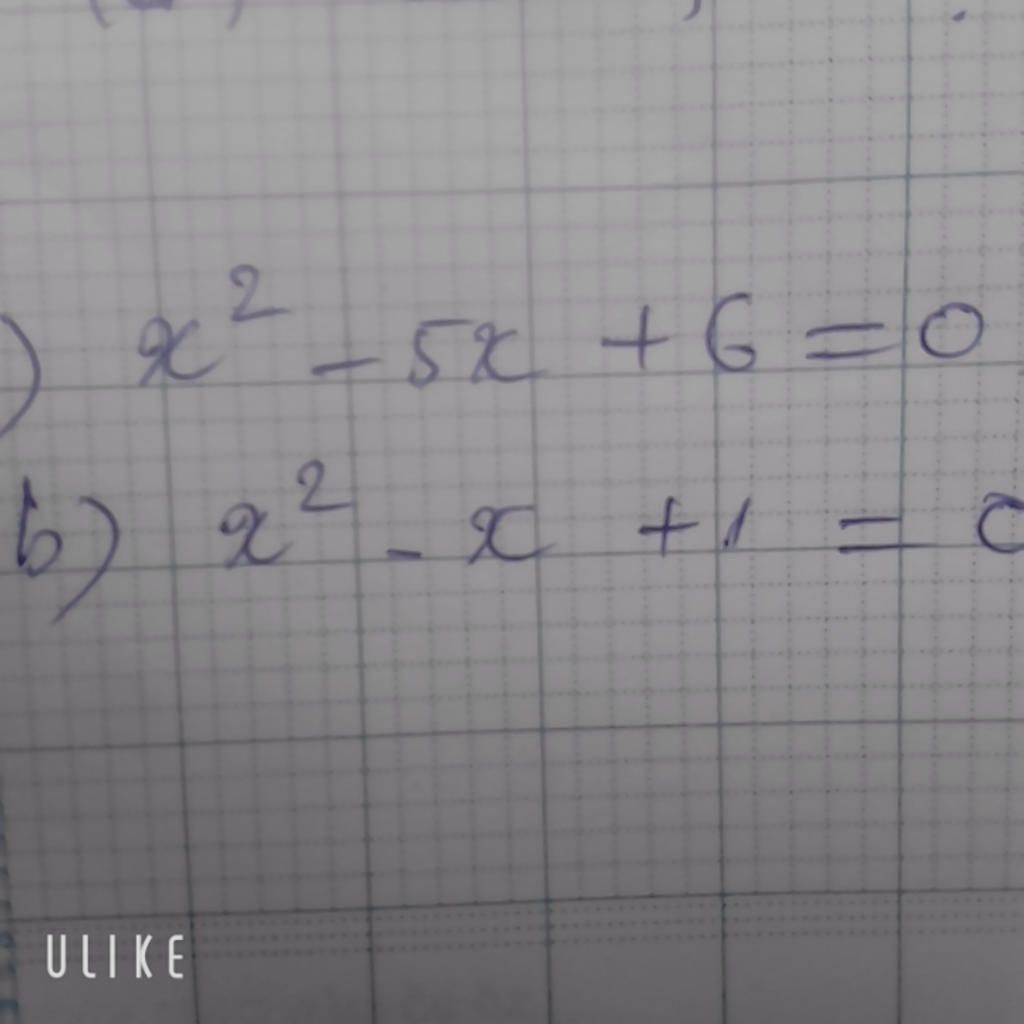 ) x² - 5x + 6 = 0
b) x² - x + 1 = 0
ULIKE